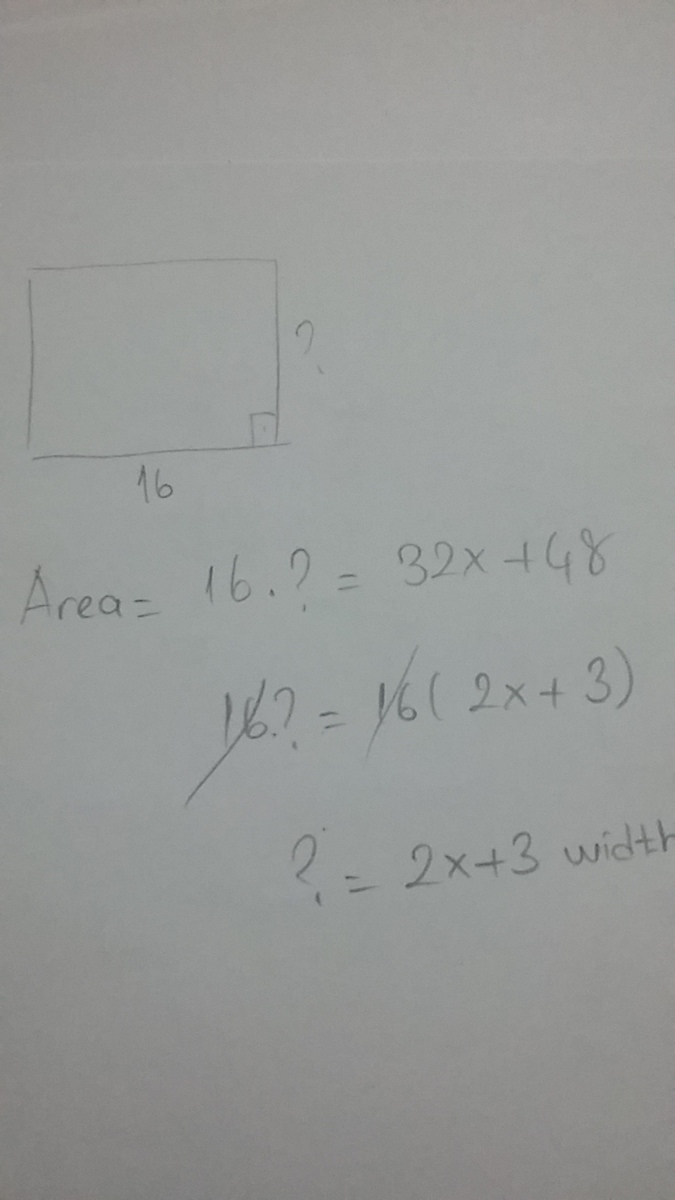 ?
16
Area = 16.? = 32x+48
16.? = 16(2x+3)
? = 2x+3 width